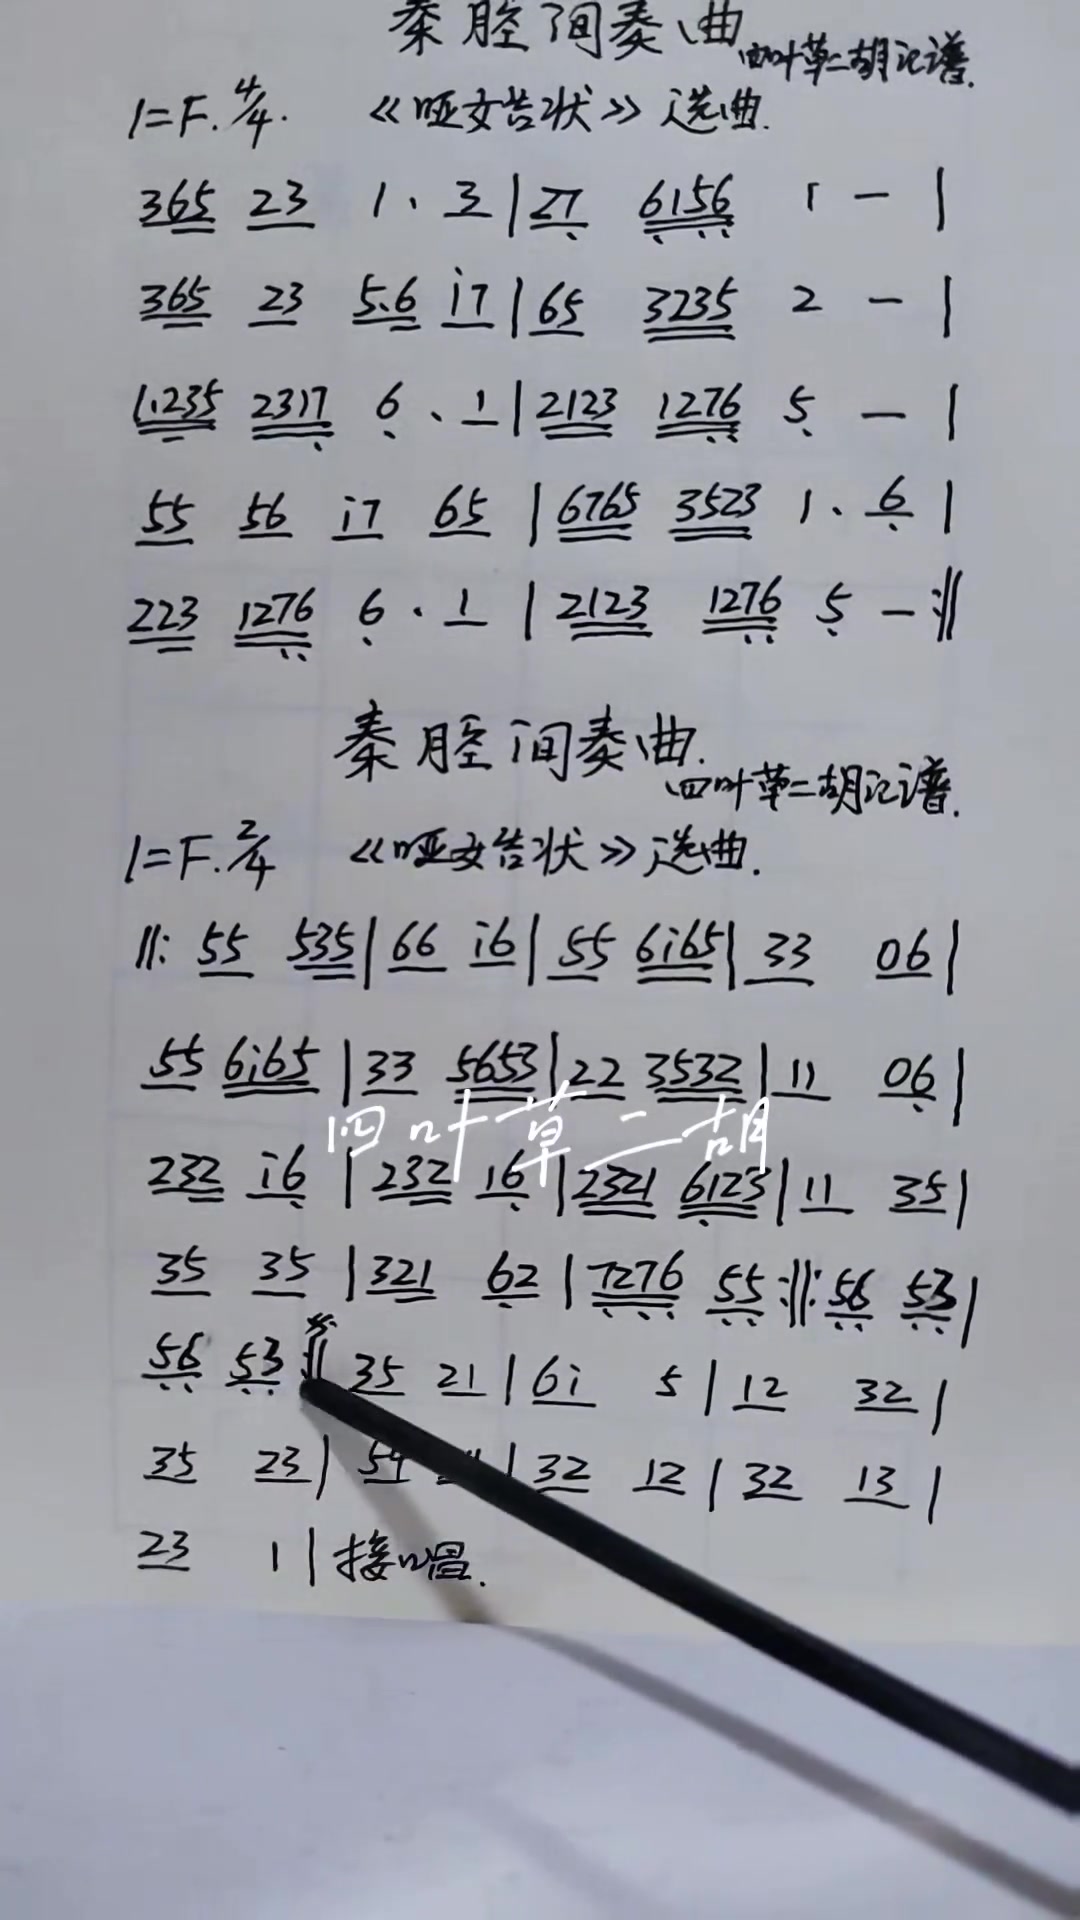 秦腔间奏曲
四叶草二胡记谱.
1=F. 4/4. 《哑女告状》选曲.
365 23 1. 3 | 27 6156 1 - |
365 23 5.6 i7 | 65 3235 2 - |
1.235 2317 6. 1 | 2123 1276 5 - |
55 56 i7 65 | 6765 3523 1. 6 |
223 1276 6. 1 | 2123 1276 5 - :||
秦腔间奏曲.
四叶草二胡记谱.
1=F. 2/4 《哑女告状》选曲.
||: 55 535 | 66 i6 | 55 6i65 | 33 06 |
55 6i65 | 33 5653 | 22 3532 | 11 06 |
四叶草二胡
232 i6 | 232 i6 | 2321 6123 | 11 35 |
35 35 | 321 62 | 7276 55 :||: 56 53 |
56 53 :|| 35 21 | 6i 5 | 12 32 |
35 23 | 54 | 32 12 | 32 13 |
23 1 | 接唱.